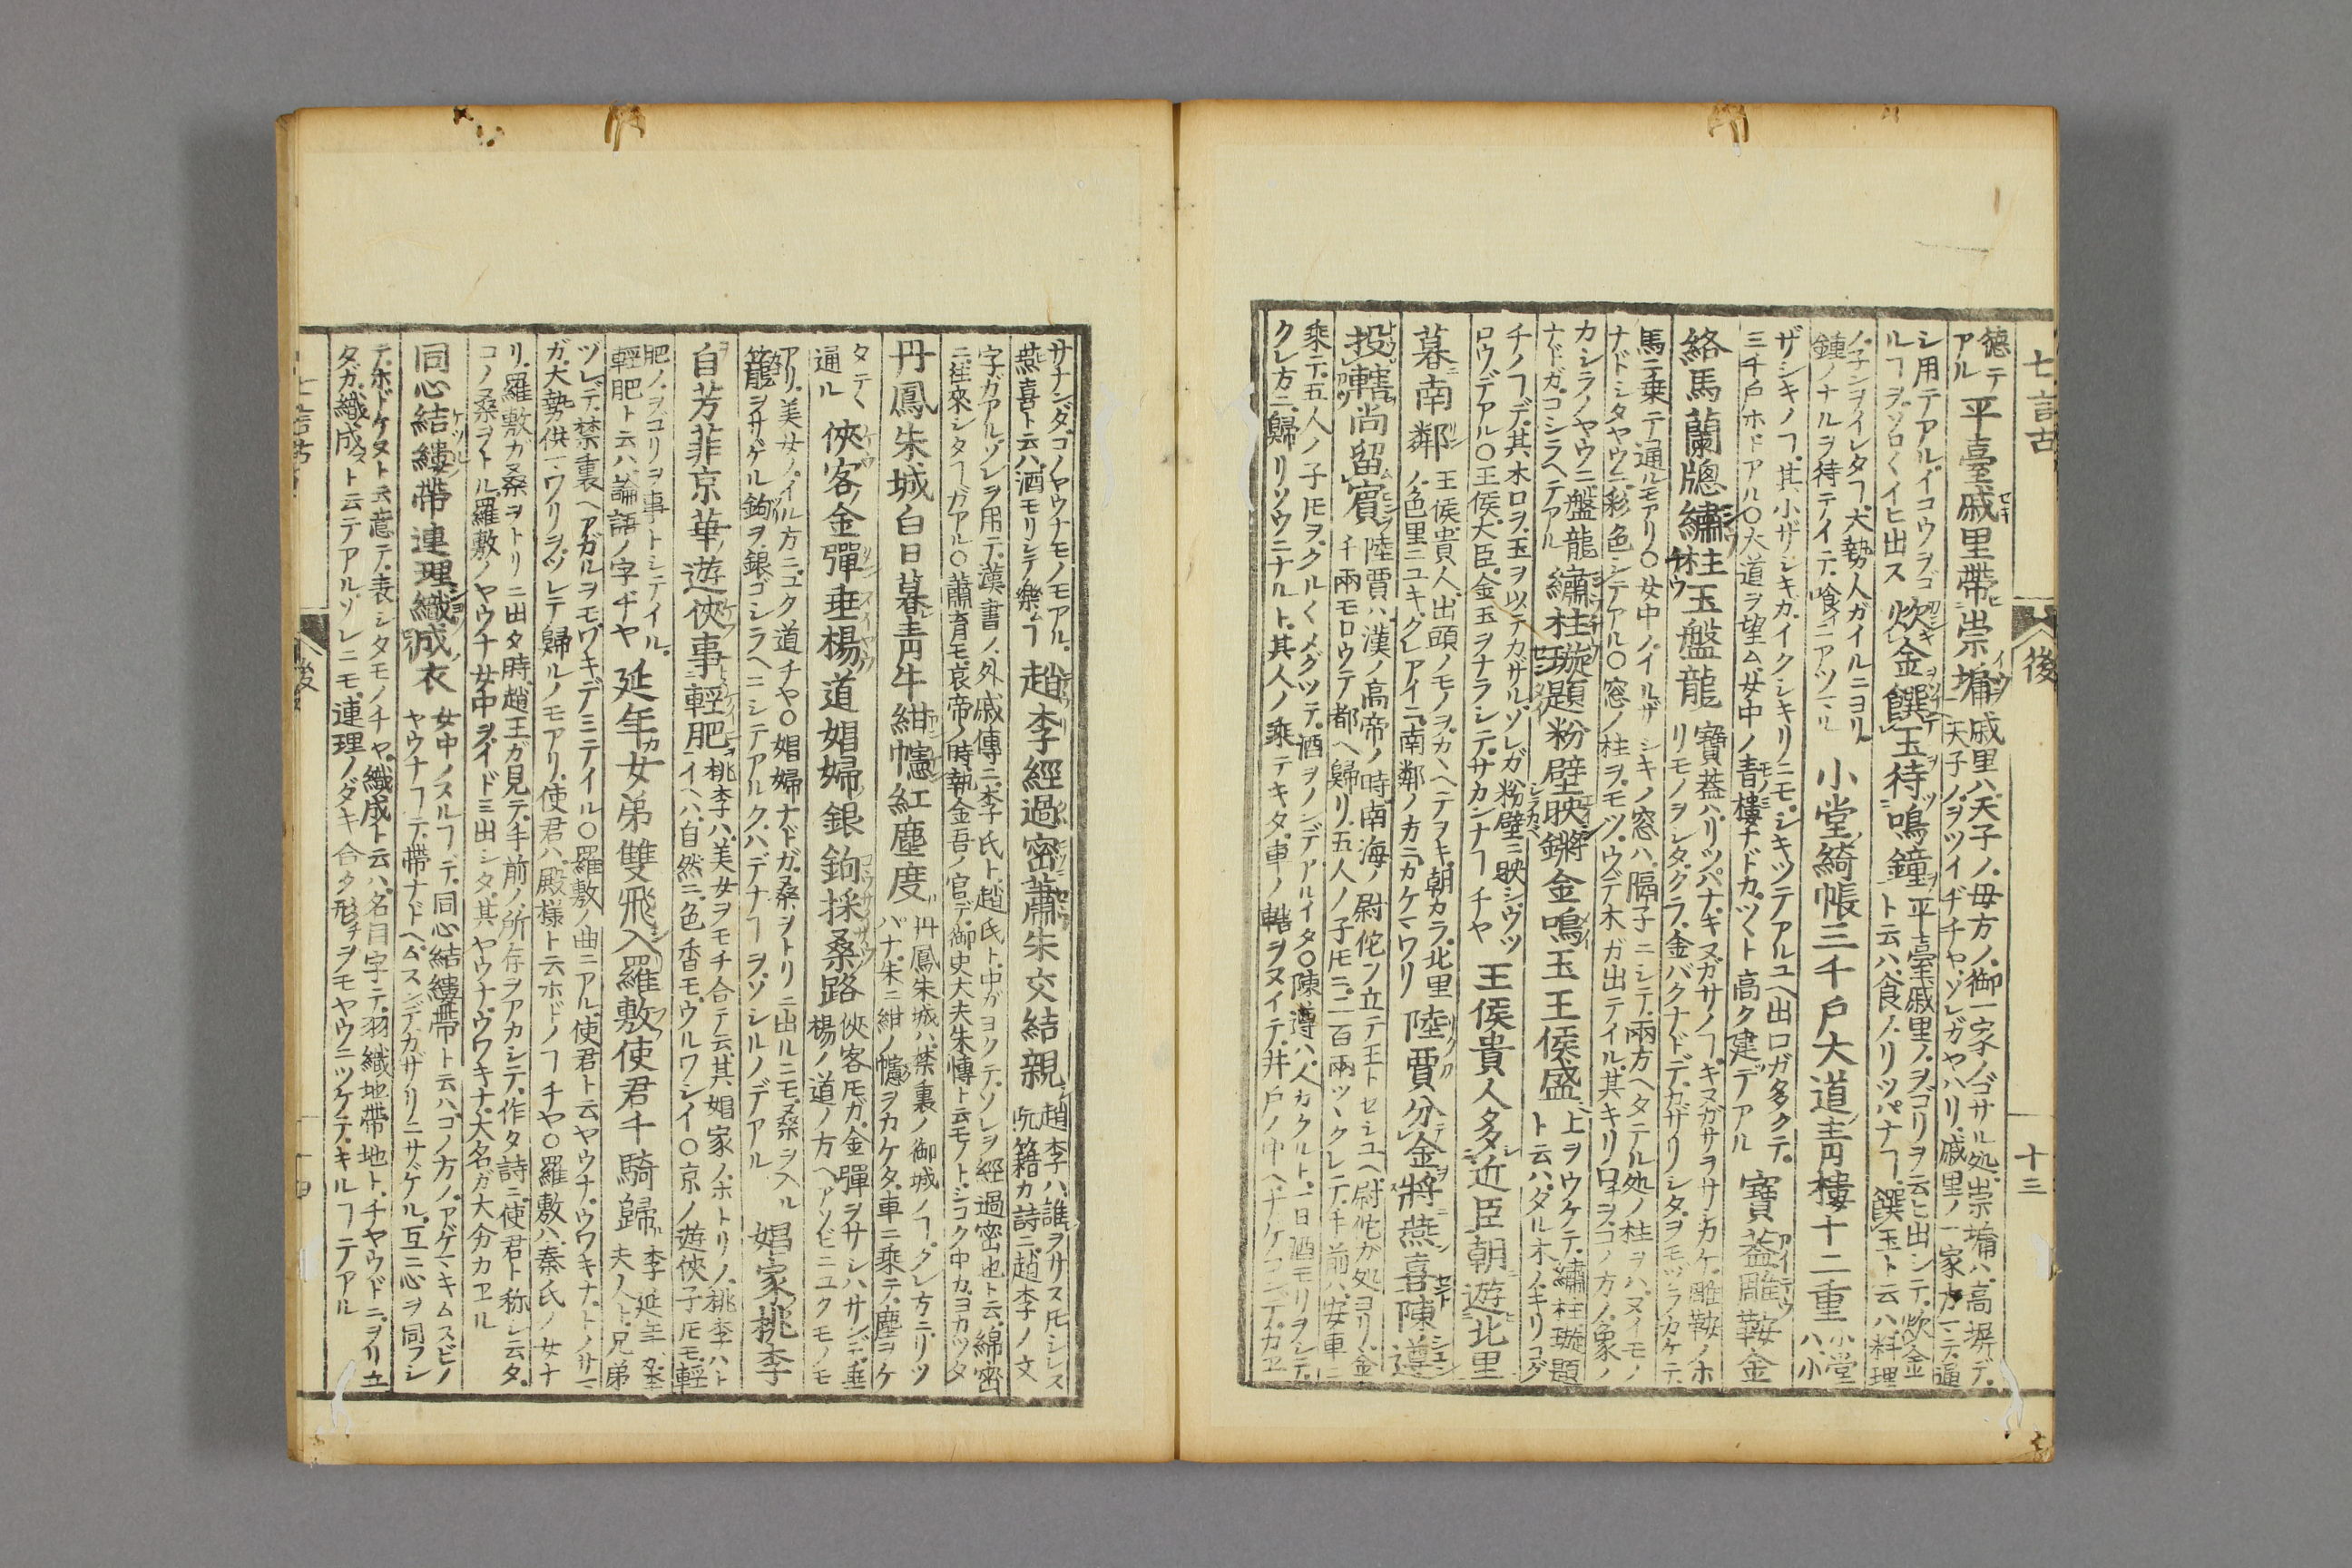 七言古
後
十三
徳テアル
平臺戚里帶崇墉
戚里ハ天子ノ母方ノ御一家ノゴサル処崇墉ハ高塀デ
天子ノヲツイヂチヤソレガヤハリ戚里ノ一家カ
シ用テアルイコウヲゴ
ルヿヲソロ〱イヒ出ス
炊金饌玉待鳴鐘
平臺戚里ノヲゴリヲ云ヒ出シテ炊金
ト云ハ食ノリツパナヿ饌玉ト云ハ料理
鍾ノナルヲ待テイテ喰ニアツマル
小堂綺帳三千戶大道靑樓十二重
小堂ハ小
ザシキノヿ其小ザシキカイクシキリニモシキツテアルユヘ出口ガ多クテ
三千戶ホドアル○大道ヲ望ム女中ノ青樓ナドカツント高ク建デアル
寶葢雕鞍金
絡馬蘭牕繡柱玉盤龍
寶葢ハリツパナキヌガサノヿキヌガサヲサシカケ雕鞍ノホ
リモノヲシタクラ金バクナドデカザリシタヲモヅラカケテ
馬ニ乗テ通ルモアリ○女中ノイルザシキノ窓ハ隔子ニシテ兩方ヘタテル処ノ柱ヲハヌイモノ
ナドシタヤウニ彩色シテアル○窓ノ柱ヲモツウデ木ガ出テイル其キリ口ヲコノ方ノ象ノ
カシラノヤウニ盤龍
ナドガコシラヘテアル
繡柱璇題粉壁映鏘金鳴玉王侯盛
上ヲウケテ繡柱璇題
ト云ハダル木ノキリコグ
チノヿデ其木口ヲ玉ヲ以テカザルソレガ粉壁ニ映シウツ
ロウデアル○王侯大臣金玉ヲナラシテサカンナヿチヤ
王侯貴人多近臣朝遊北里
暮南鄰
王侯貴人出頭ノモノヲカヽヘテヲキ朝カラ北里
ノ色里ニユキクレアイニ南鄰ノ方ニカケマワリ
陸賈分金將燕喜陳遵
投轄尚留賓
陸賈ハ漢ノ高帝ノ時南海ノ尉佗ン立テ王トセシユヘ尉佗が処ヨリ金
千兩モロウテ都ヘ歸リ五人ノ子𪜈ニ二百兩ツヽクレテ手前ハ安車ニ
乘テ五人ノ子𪜈ヲクル〱メグツテ酒ヲノンデアルイタ○陳遵ハ人カクルト一日酒モリヲシテ
クレ方ニ歸リソウニナルト其人ノ乗テキタ車ノ轄ヲヌイテ井戶ノ中ヘナゲコンデカヱ
サナンダコノヤウナモノモアル
燕喜ト云ハ酒モリシテ樂ムヿ
趙李經過密蕭朱交結親
趙李ハ誰ヲサス𪜈シレス
阮籍カ詩ニ趙李ノ文
字ガアルソレヲ用テ漢書ノ外戚傳ニ李氏ト趙氏ト中ガヨクテソレヲ經過密也ト云綿密
ニ徃來シタヿガアル○蕭育モ哀帝ノ時執金吾ノ官デ御史大夫朱慱ト云モノトシコク中カヨカツタ
丹鳳朱城白日暮靑牛紺幰紅塵度
丹鳳朱城ハ禁裏ノ御城ノヿクレ方ニリツ
バナ朱ニ紺ノ幰ヲカケタ車ニ乗テ塵ヲケ
タテヽ
通ル
俠客金彈垂楊道娼婦銀鉤採桑路
俠客𪜈ガ金彈ヲサシハサンデ垂
楊ノ道ノ方ヘアソビニユクモノモ
アリ美女ノイル方ニユク道チヤ○娼婦ナドガ桑ヲトリニ出ルニモ桑ヲ入ル
籠ヲサゲル鉤ヲ銀ゴシラヘニシテアルクハデナヿヲソシルノデアル
娼家桃李
自芳菲京華遊俠事輕肥
桃李ハ美女ヲモチ合テ云其娼家ノホトリノ桃李ハト
イヘハ自然ニ色香モウルワシイ○京ノ遊俠子𪜈モ輕
肥ノヲゴリヲ事トシテイル
輕肥ト云ハ論語ノ字ヂヤ
延年女弟雙飛入羅敷使君千騎歸
李延年女李
夫人ト兄弟
ツレデ禁裏ヘアガルヲモワキデミテイル○羅敷ノ曲ニアル使君ト云ヤウナウワキナトノサマ
ガ大勢供マワリヲツレテ歸ルノモアリ使君ハ殿様ト云ホドノヿチヤ○羅敷ハ秦氏ノ女ナ
リ羅敷ガ桑ヲトリニ出タ時趙王ガ見テ手前ノ所存ヲアカシテ作タ詩ニ使君ト称シ云タ
コノ桑ヲトル羅敷ノヤウナ女中ヲイドミ出シタ其ヤウナウワキナ大名ガ大分カヱル
同心結縷帶連理織成衣
女中ノスルヿデ同心結縷帶ト云ハコノ方ノアゲマキムスビノ
ヤウナヿデ帶ナドヘムスンデカザリニサゲル互ニ心ヲ同フシ
テホドケヌト云意デ表シタモノチヤ織成ト云ハ名目字デ羽織地帶地トチヤウドニヲリ立
タガ織成ト云テアルソレニモ連理ノダキ合タ形チヲモヤウニツケテキルヿテアル
七言古
後
十四